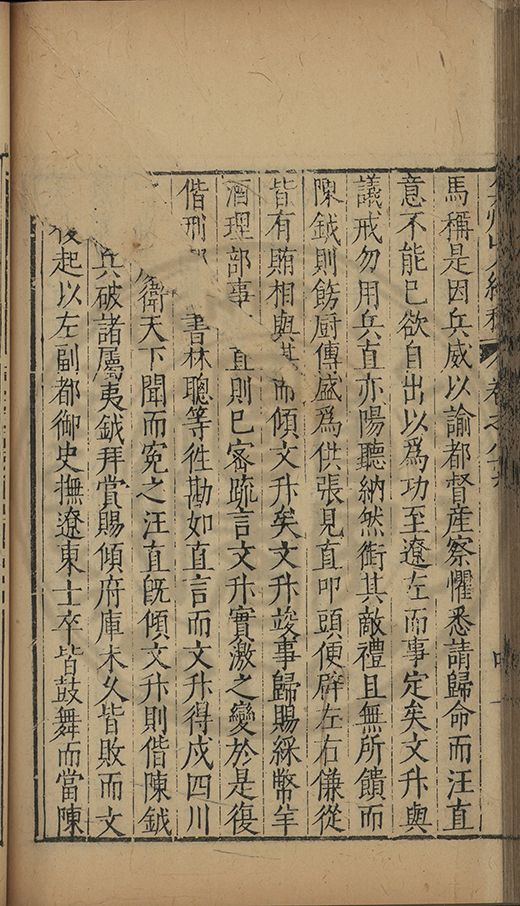 弇州山人續稿 卷之八十六
馬稱是因兵威以諭都督產察懼悉請歸命而汪直
意不能已欲自出以為功至遼左而事定矣文升與
議戒勿用兵直亦陽聽納然銜其敵禮且無所饋而
陳鉞則飭厨傳盛為供張見直叩頭便辟左右傔從
皆有賄相與其而傾文升矣文升竣事歸賜綵幣羊
酒理部事 直則已密疏言文升實激之變於是復
偕刑 書林聰等徃勘如直言而文升得戍四川
衛天下聞而冤之汪直既傾文升則偕陳鉞
兵破諸屬夷鉞拜賞賜傾府庫未久皆敗而文
復起以左副都御史撫遼東士卒皆鼓舞而當陳